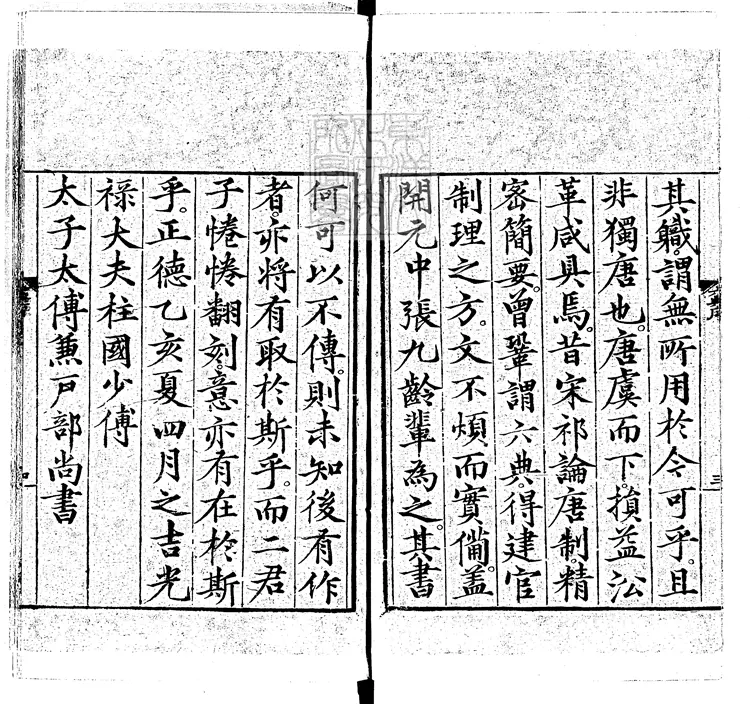 其軄謂無所用於今可乎。且
非獨唐也。唐虞而下。損益㳂
革咸具焉。昔宋祁論唐制精
密簡要。曾鞏謂六典。得建官
制理之方。文不煩而實備。蓋
開元中張九齡輩為之。其書
何可以不傳。則未知後有作
者。亦將有取於斯乎。而二君
子惓惓翻刻。意亦有在於斯
乎。正德乙亥夏四月之吉光
禄大夫柱國少傅
太子太傅蒹戸部尚書